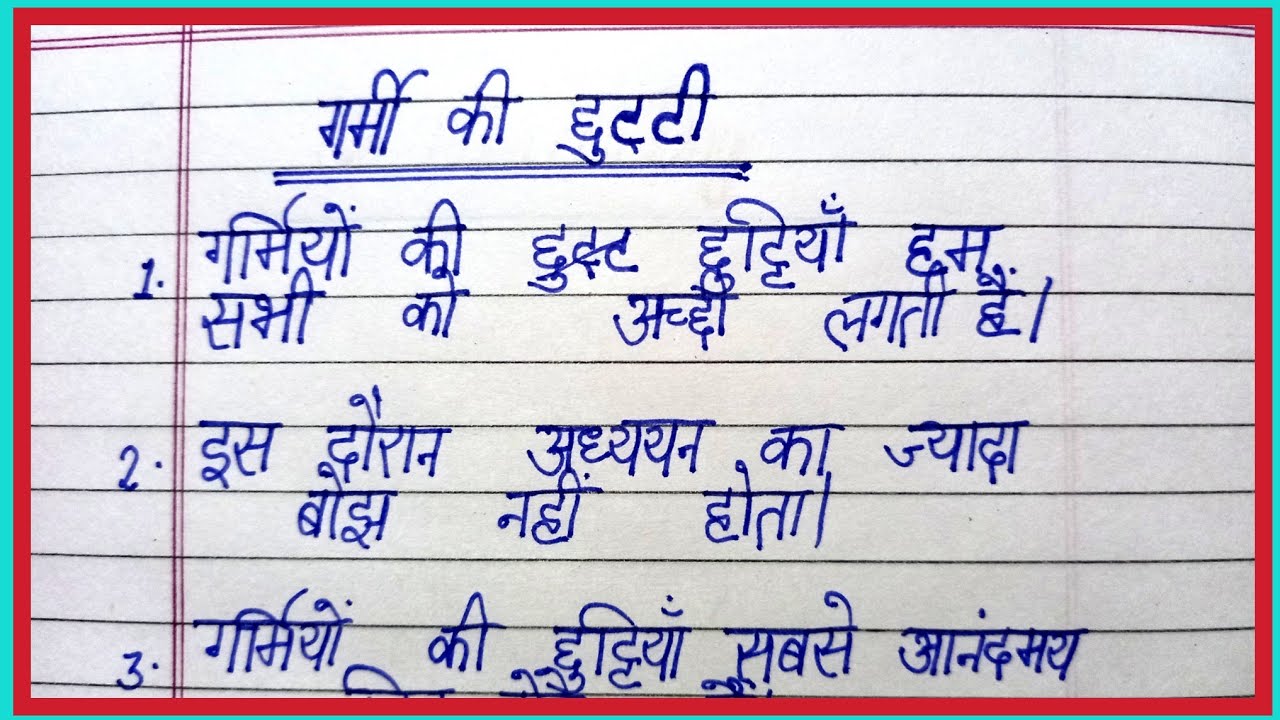 गर्मी की छुट्टी
1. गर्मियों की छुट्ट छुट्टियाँ हम
सभी को अच्छी लगती हैं।
2. इस दौरान अध्ययन का ज्यादा
बोझ नहीं होता।
3. गर्मियों की छुट्टियाँ सबसे आनंदमय